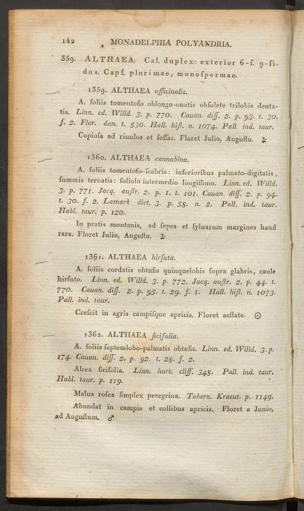 142 MONADELPHIA POLYANDRIA.
359. ALTHAEA. Cal. duplex: exterior 6-s. 9-fi-
dus. Caps. plurimae, monospermae.
1359. ALTHAEA officinalis.
A. foliis tomentosis oblongo-ouatis obsolete trilobis denta-
tis. Linn. ed. Willd. 3. p. 770. Cauan. diss. 2. p. 93. t. 30.
f. 2. Flor. dan. t. 530. Hall. hist. n. 1074. Pall. ind. taur.
Copiosa ad riuulos et fossas. Floret Julio, Augusto. ♃
1360. ALTHAEA cannabina.
A. foliis tomentoso-scabris: inferioribus palmato-digitatis,
summis ternatis: foliolo intermedio longissimo. Linn. ed. Willd.
3. p. 771. Jacq. austr. 2. p. 1. t. 101. Cauan. diss. 2. p. 94.
t. 30. f. 2. Lamark dict. 3. p. 58. n. 2. Pall. ind. taur.
Habl. taur. p. 120.
In pratis montanis, ad sepes et syluarum margines haud
rara. Floret Julio, Augusto. ♃
1361. ALTHAEA hirsuta.
A. foliis cordatis obtuse quinquelobis supra glabris, caule
hirsuto. Linn. ed. Willd. 3. p. 772. Jacq. austr. 2. p. 44. t.
770. Cauan. diss. 2. p. 95. t. 29. f. 1. Hall. hist. n. 1073.
Pall. ind. taur.
Crescit in agris campisque apricis. Floret aestate. ☉
1362. ALTHAEA ficifolia.
A. foliis septemlobo-palmatis obtusis. Linn. ed. Willd. 3. p.
174. Cauan. diss. 2. p. 92. t. 28. f. 2.
Alcea ficifolia. Linn. hort. cliff. 348. Pall. ind. taur.
Habl. taur. p. 119.
Malua rosea simplex peregrina. Tabern. Kraeut. p. 1149.
Abundat in campis et collibus apricis. Floret a Junio,
ad Augustum. ♂